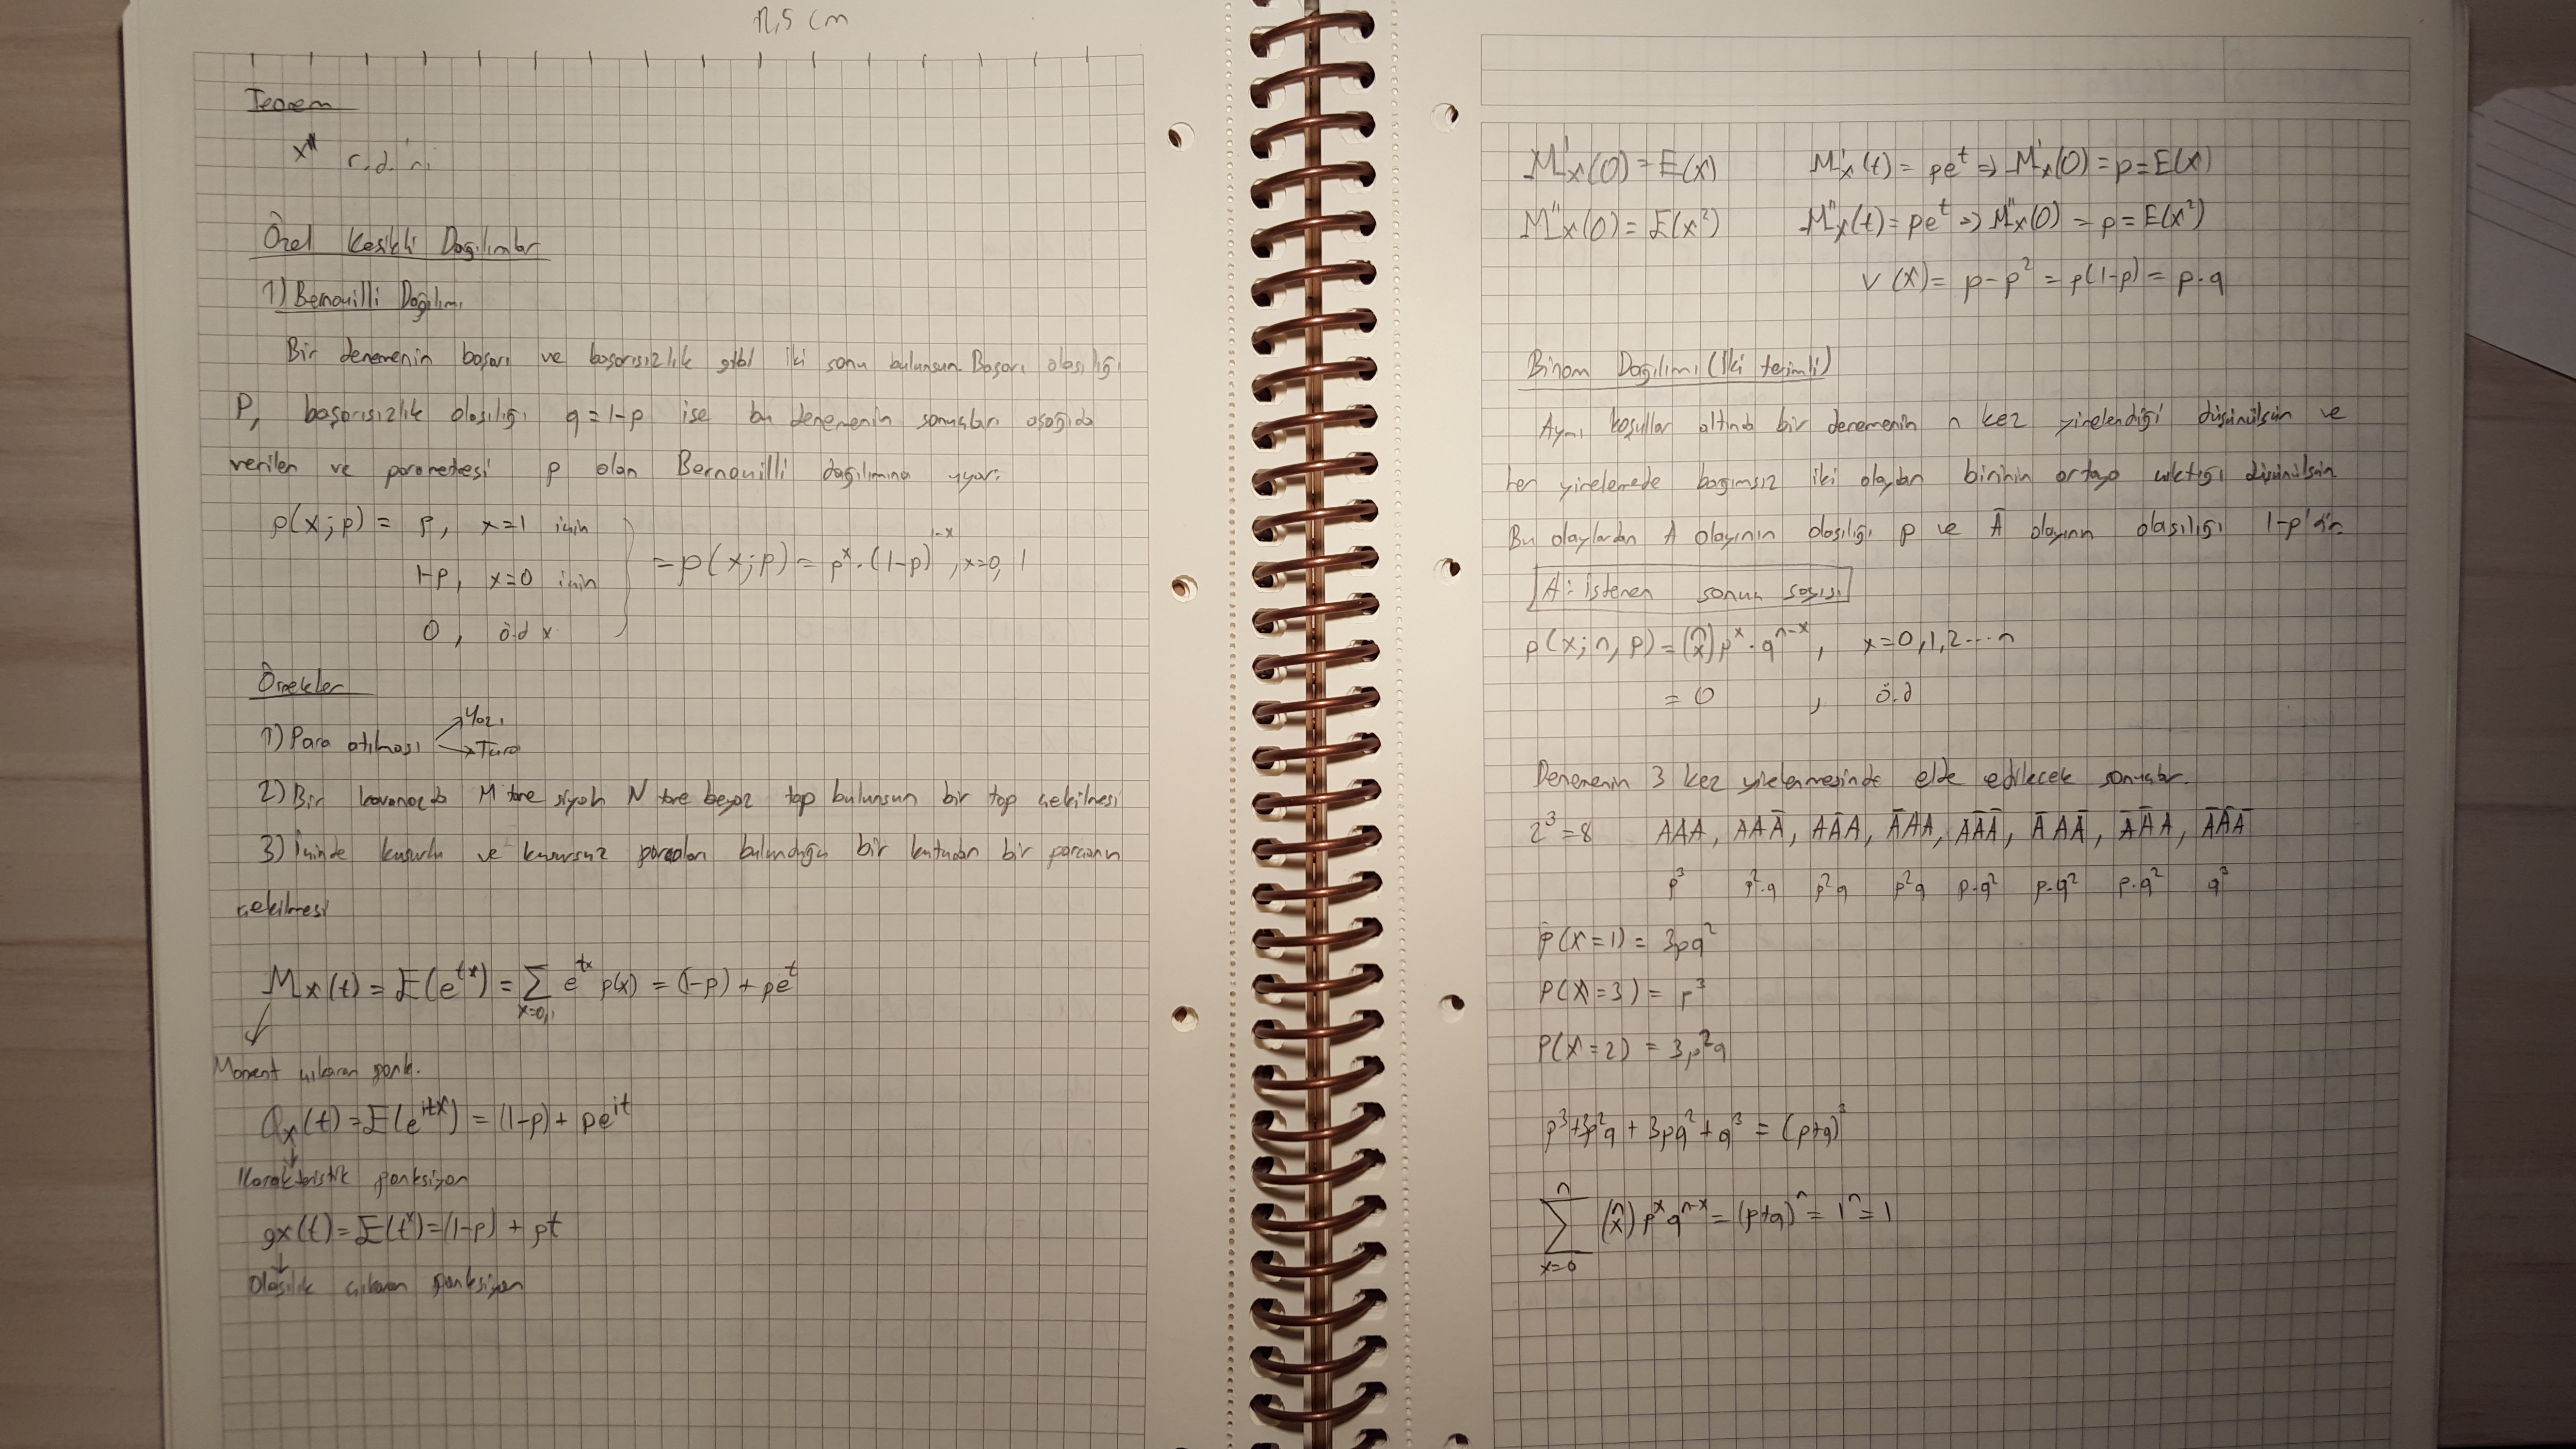 12,5 cm
Teorem
x r.d.'ni
Özel Kesikli Dağılımlar
1) Bernouilli Dağılımı
Bir denemenin başarı ve başarısızlık gibi iki sonu bulunsun. Başarı olasılığı
P, başarısızlık olasılığı q=1-p ise bu denemenin sonuçları aşağıda
verilen ve parametresi p olan Bernouilli dağılımına uyar:
p(x;p) = p, x=1 için
1-p, x=0 için
0, ö.d x
= p(x;p) = p^x . (1-p)^{1-x}, x=0,1
Örnekler
1) Para atılması → Yazı → Tura
2) Bir kavanozda M tane siyah N tane beyaz top bulunsun bir top çekilmesi
3) İçinde kusurlu ve kusursuz parçaları bulunduğu bir kutudan bir parçanın
çekilmesi
Mx(t) = E(e^{tx}) = ∑_{x=0,1} e^{tx} p(x) = (1-p) + pe^t
Moment çıkaran fonk.
Qx(t) = E(e^{itx}) = (1-p) + pe^{it}
Karakteristik fonksiyon
gx(t) = E(t^x) = (1-p) + pt
Olasılık çıkaran fonksiyon
M'x(0) = E(x) M'x(t) = pe^t ⇒ M'x(0) = p = E(x)
M''x(0) = E(x²) M''x(t) = pe^t ⇒ M''x(0) = p = E(x²)
V(x) = p-p² = p(1-p) = p.q
Binom Dağılımı (İki terimli)
Aynı koşullar altında bir denemenin n kez yinelendiği düşünülsün ve
her yinelemede bağımsız iki olaydan birinin ortaya çıktığı düşünülsün
Bu olaylardan A olayının olasılığı p ve Ā olayının olasılığı 1-p'dir.
A: istenen sonuç sayısı
p(x;n,p) = (n x) p^x . q^{n-x}, x=0,1,2...n
= 0 , ö.d
Denemenin 3 kez yinelenmesinde elde edilecek sonuçlar.
2³=8 AAA, AAĀ, AĀA, ĀAA, AĀĀ, ĀAĀ, ĀĀA, ĀĀĀ
p³ p².q p²q p²q p.q² p.q² p.q² q³
P(X=1) = 3pq²
P(X=3) = p³
P(X=2) = 3p²q
p³+3p²q + 3pq² + q³ = (p+q)³
∑_{x=0}^{n} (n x) p^x q^{n-x} = (p+q)^n = 1^n = 1